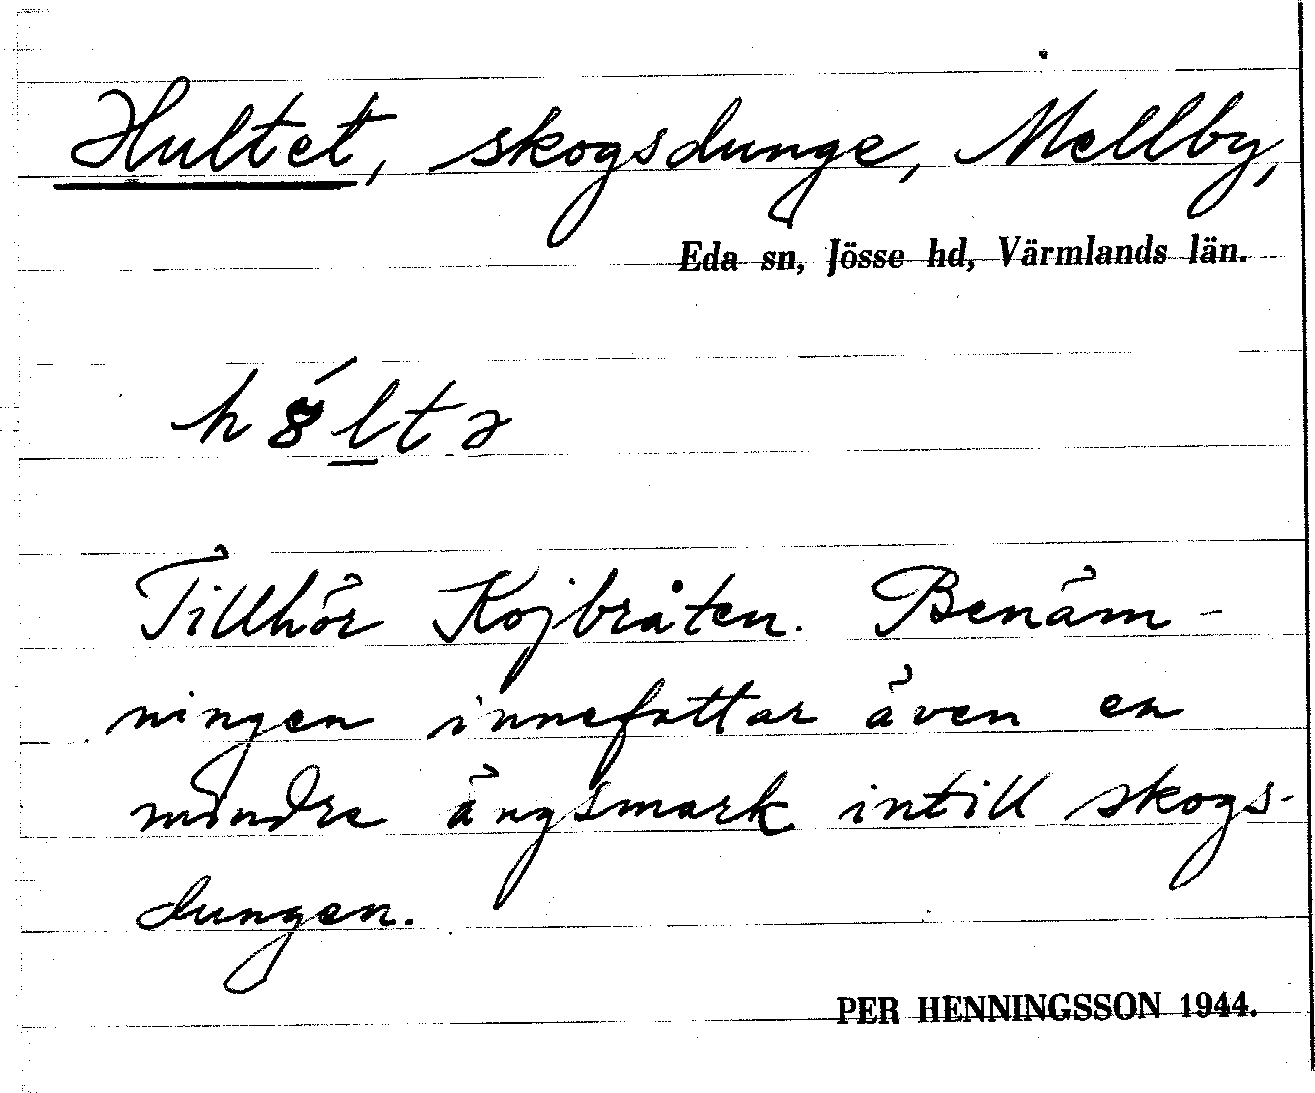 Hultet, skogsdunge, Mellby,
Eda sn, Jösse hd, Värmlands län.
Tillhör Kojbråten. Benäm-
ningen innefattar även en
mindre ängsmark intill skogs-
dungen.
PER HENNINGSSON 1944.